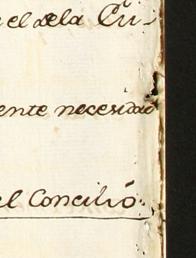 el dela Cu-
ente necesidad
el Concilió.